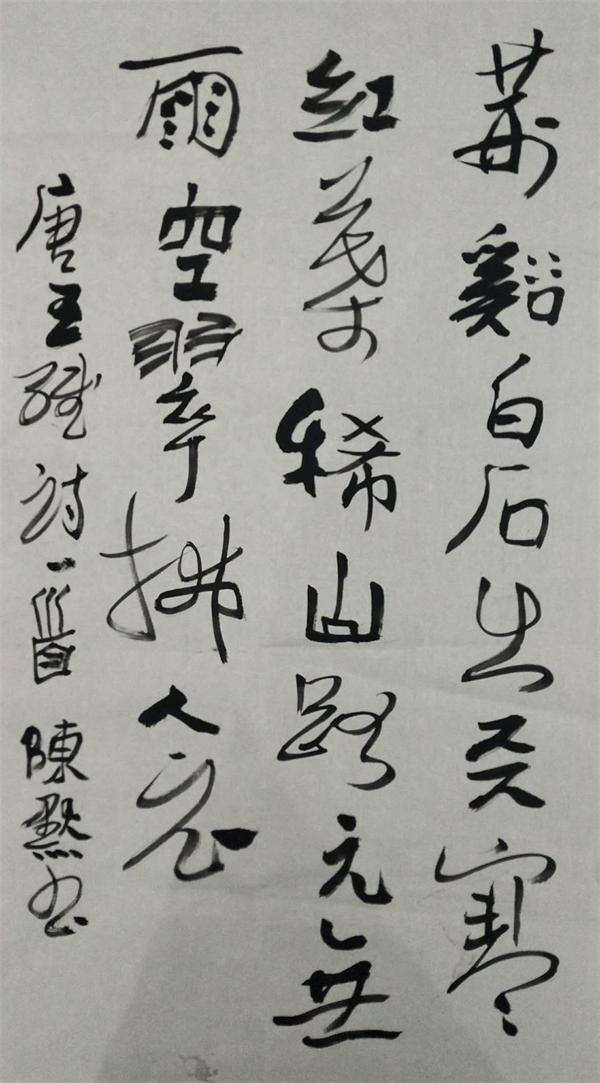 荆谿白石出天寒
紅葉稀山路元無
雨空翠拂人衣
唐王維詩一首 陳默书